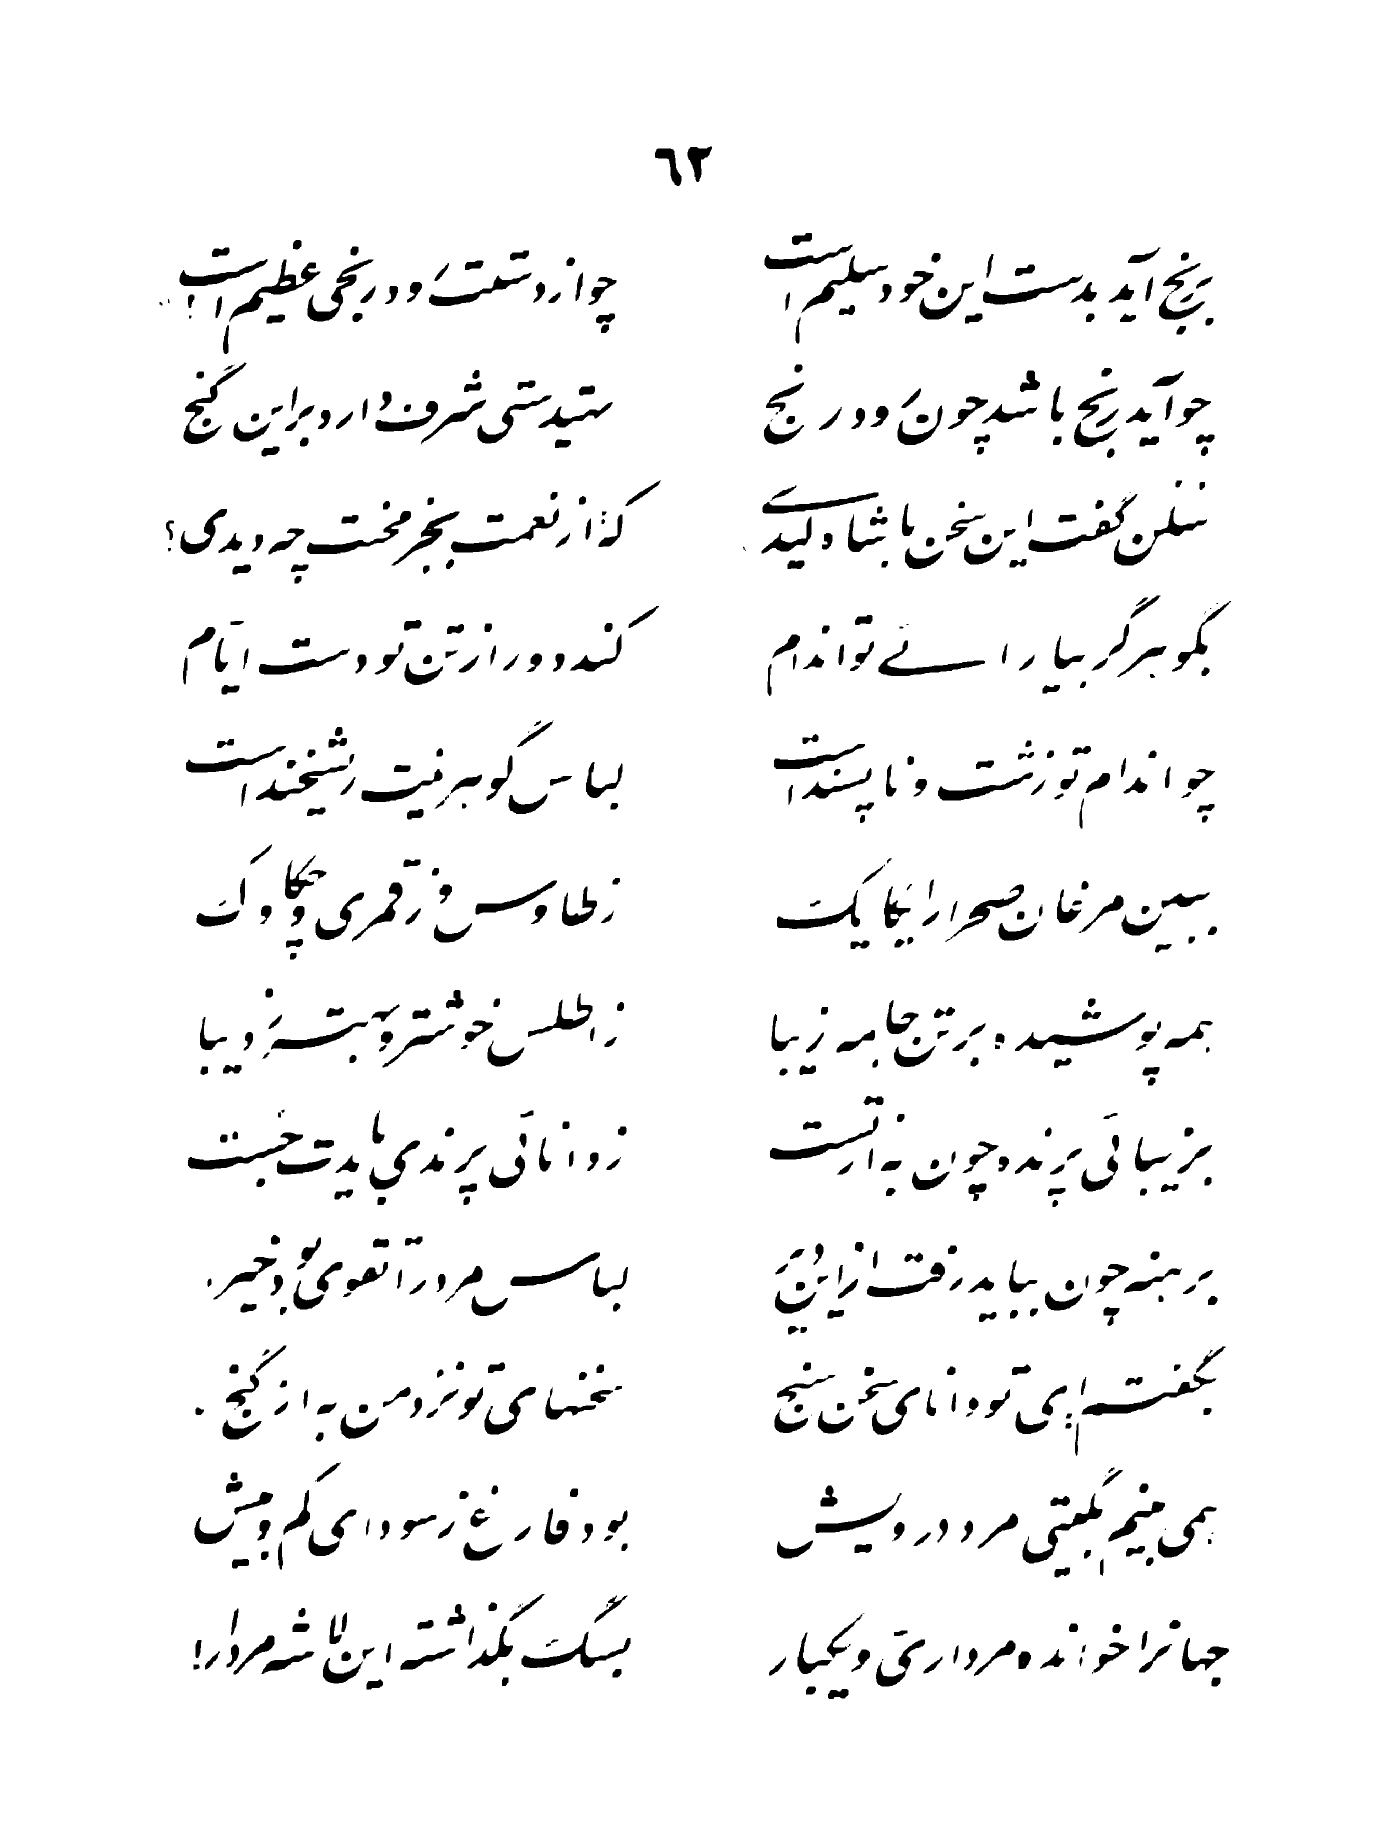 ٦٢
برنج آید بدست این خود سلیم است چو از دستت رود رنجی عظیم است!
چو آید رنج باشد چون رود رنج تهیدستی شرف دارد بر این گنج
گفت این سخن با شاه که از نعمت بجز محنت چه دیدی؟
بگو هر گز بیارائی تو اندام کند دور از تن تو دست ایّام
چو اندام تو زشت و ناپسند است لباس گوهرینت ریشخند است
ببین مرغان صحرا را یکایک ز طاوس و ز قمری و چکاوک
همه پوشیده بر تن جامه زیبا ز اطلس خوشتر و بهتر ز دیبا
بزیبائی پرنده چون به از تست ز دانائی پرندی بایدت جست
برهنه چون بباید رفت از این دیر لباس مرد را تقوی بود خیر
بگفتم ای تو دانای سخن سنج سخنهای تو نزد من به از گنج
همی بینم بگیتی مرد درویش بود فارغ ز سودای کم و بیش
جهانرا خوانده مرداری و یکبار بسگ بگذاشته این لاشه مردار!